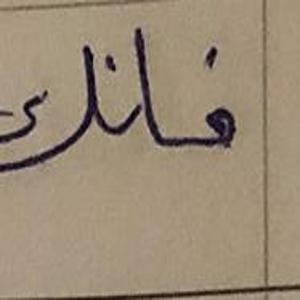 فانك